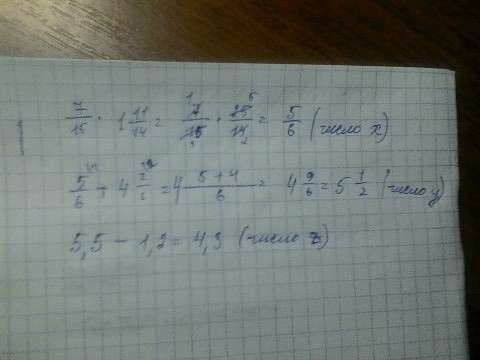 7/15 · 1 11/14 = 7/15 · 25/14 = 5/6 (число x)
5/6 + 4 2/3 = 4 (5+4)/6 = 4 9/6 = 5 1/2 (число y)
5,5 - 1,2 = 4,3 (число z)